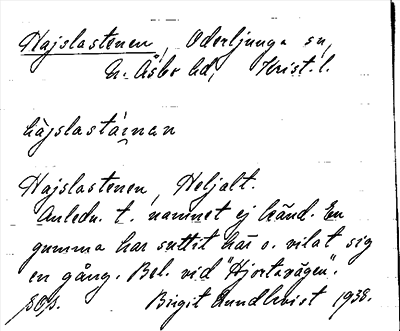 Hajslastenen, Oderljunga sn,
N. Åsbo hd, Krist. l.
hàjslastáinan
Hajslastenen, Heljalt.
Anledn. t. namnet ej känd. En
gumma har suttit här o. vilat sig
en gång. Bel. vid "Hjortavägen".
Birgit Lundkvist 1938.